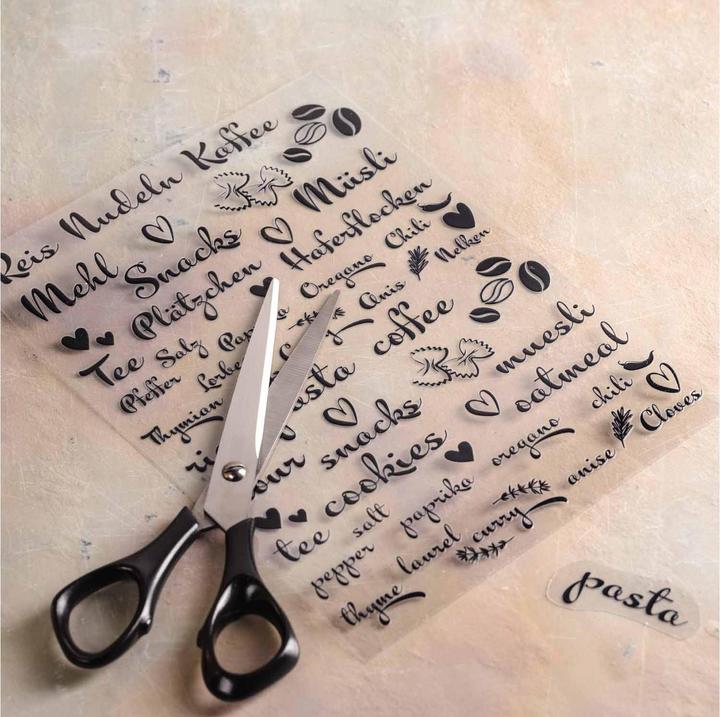 Reis Nudeln Kaffee
Mehl Snacks Müsli
Plätzchen Haferflocken
Tee Salz Oregano Chili
Pfeffer Anis Nelken
Thymian
coffee
snacks muesli
tee cookies oatmeal
salt paprika oregano chili
pepper laurel curry anise Cloves
thyme
pasta